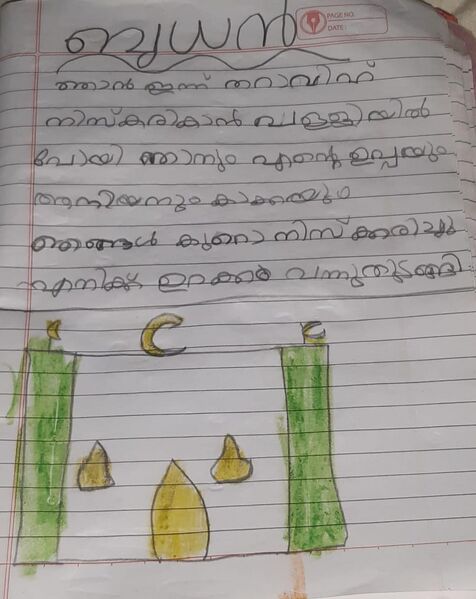 ബുധൻ
PAGE NO.
DATE:
ഞാൻ ഇന്ന് തറാവിഹ്
നിസ്കരികാൻ പള്ളിയിൽ
പോയി ഞാനും എന്റെ ഉപ്പയും
അനിയനും കാക്കയും
ഞങ്ങൾ കുറെ നിസ്ക്കരിച്ചു
എനിക്ക് ഉറക്കം വന്നുതുടങ്ങി